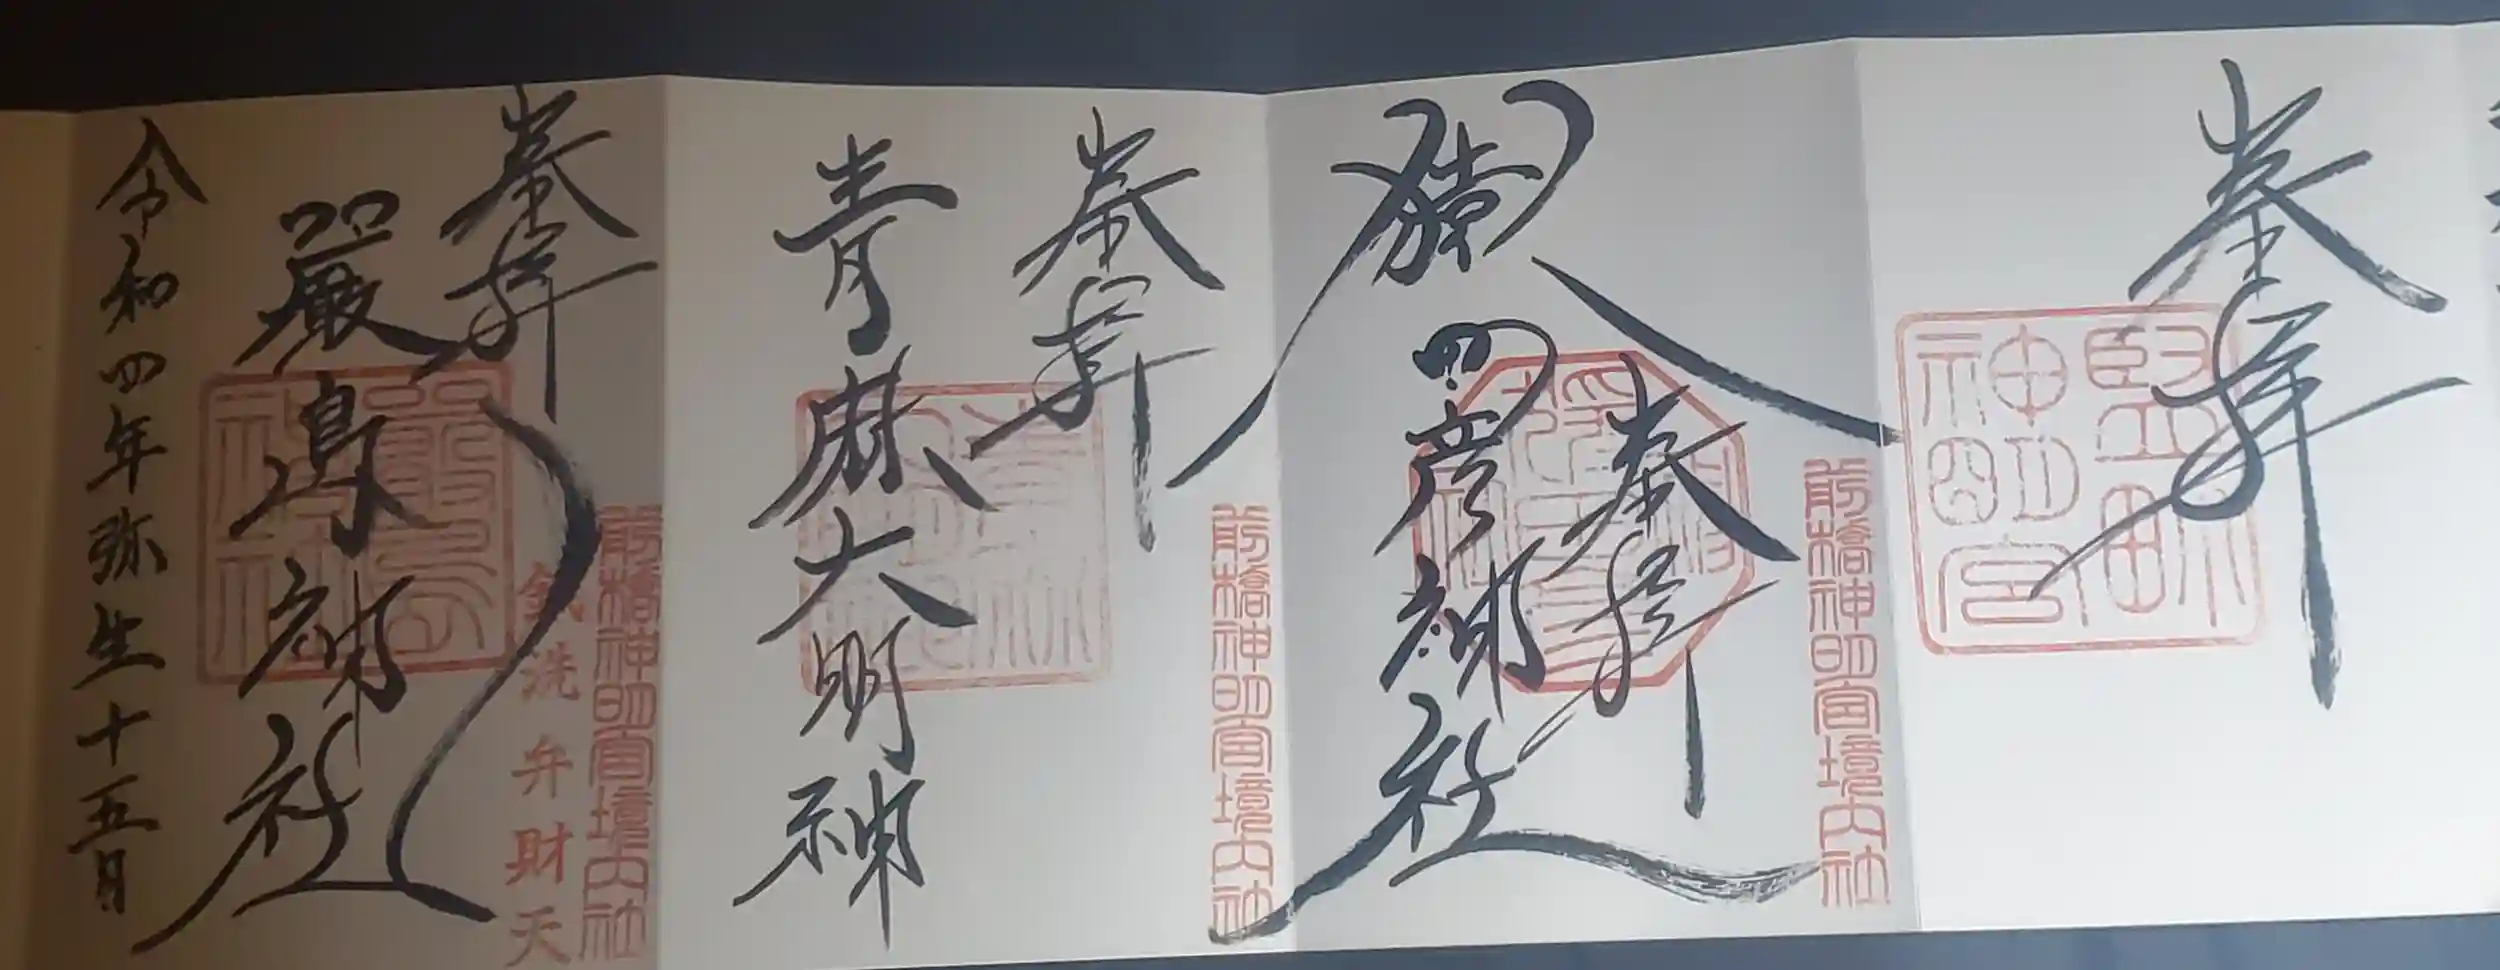 奉拝
竪町神明宮
前橋神明宮境内社
奉拝
猿田彦神社
前橋神明宮境内社
奉拝
青麻大明神
前橋神明宮境内社
銭洗弁財天
奉拝
嚴島神社
嚴島神社
令和四年弥生十五日